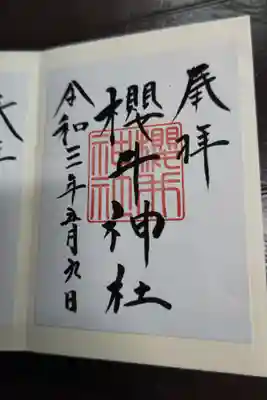 奉拝
櫻井神社
櫻井
神社
令和三年五月九日